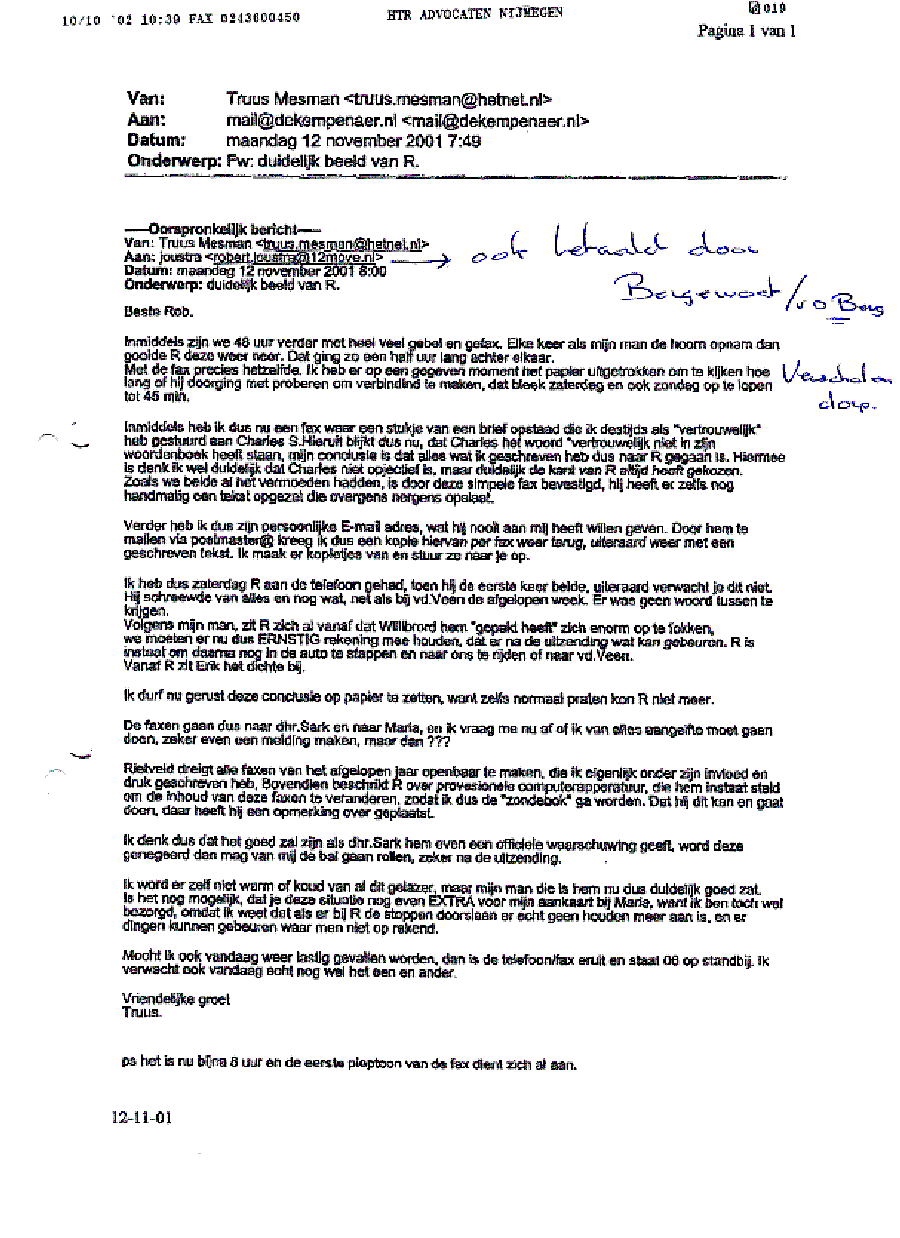 10/10 '02 10:39 FAX 0243600450 HTR ADVOCATEN NIJMEGEN 019
Pagina 1 van 1
Van: Truus Mesman <truus.mesman@hetnet.nl>
Aan: mail@dekempenaer.nl <mail@dekempenaer.nl>
Datum: maandag 12 november 2001 7:49
Onderwerp: Fw: duidelijk beeld van R.
-----Oorspronkelijk bericht-----
Van: Truus Mesman <truus.mesman@hetnet.nl>
Aan: joustra <robert.joustra@12move.nl> → ook betaald door
Datum: maandag 12 november 2001 8:00
Onderwerp: duidelijk beeld van R.
Bergewoet/v.d Berg
Beste Rob.
Inmiddels zijn we 48 uur verder met heel veel gebel en gefax. Elke keer als mijn man de hoorn opnam dan
gooide R deze weer neer. Dat ging zo een half uur lang achter elkaar.
Met de fax precies hetzelfde. Ik heb er op een gegeven moment het papier uitgetrokken om te kijken hoe
lang of hij doorging met proberen om verbindind te maken, dat bleek zaterdag en ook zondag op te lopen
tot 45 min.
dorp.
Inmiddels heb ik dus nu een fax waar een stukje van een brief opstaad die ik destijds als "vertrouwelijk"
heb gestuurd aan Charles S.Hieruit blijkt dus nu, dat Charles het woord "vertrouwelijk niet in zijn
woordenboek heeft staan, mijn conclusie is dat alles wat ik geschreven heb dus naar R gegaan is. Hiermee
is denk ik wel duidelijk dat Charles niet opjectief is, maar duidelijk de kant van R altijd heeft gekozen.
Zoals we beide al het vermoeden hadden, is door deze simpele fax bevestigd, hij heeft er zelfs nog
handmatig een tekst opgezet die overgens nergens opslaat.
Verder heb ik dus zijn persoonlijke E-mail adres, wat hij nooit aan mij heeft willen geven. Door hem te
mailen via postmaster@ kreeg ik dus een kopie hiervan per fax weer terug, uiteraard weer met een
geschreven tekst. Ik maak er kopietjes van en stuur ze naar je op.
Ik heb dus zaterdag R aan de telefoon gehad, toen hij de eerste keer belde, uiteraard verwacht je dit niet.
Hij schreewde van alles en nog wat, net als bij vd.Veen de afgelopen week. Er was geen woord tussen te
krijgen.
Volgens mijn man, zit R zich al vanaf dat Willibrord hem "gepakt heeft" zich enorm op te fokken,
we moeten er nu dus ERNSTIG rekening mee houden, dat er na de uitzending wat kan gebeuren. R is
instaat om daarna nog in de auto te stappen en naar ons te rijden of naar vd.Veen.
Vanaf R zit Erik het dichte bij.
Ik durf nu gerust deze conclusie op papier te zetten, want zelfs normaal praten kon R niet meer.
De faxen gaan dus naar dhr.Sark en naar Maria, en ik vraag me nu af of ik van alles aangifte moet gaan
doen, zeker even een melding maken, maar dan ???
Rietveld dreigt alle faxen van het afgelopen jaar openbaar te maken, die ik eigenlijk onder zijn invloed en
druk geschreven heb. Bovendien beschrikt R over provesionele computerapparatuur, die hem instaat steld
om de inhoud van deze faxen te veranderen, zodat ik dus de "zondebok" ga worden. Dat hij dit kan en gaat
doen, daar heeft hij een opmerking over geplaatst.
Ik denk dus dat het goed zal zijn als dhr.Sark hem even een officiele waarschuwing geeft, word deze
genegeerd dan mag van mij de bal gaan rollen, zeker na de uitzending.
Ik word er zelf niet warm of koud van al dit gelazer, maar mijn man die is hem nu dus duidelijk goed zat.
Is het nog mogelijk, dat je deze situatie nog even EXTRA voor mijn aankaart bij Maria, want ik ben toch wel
bezorgd, omdat ik weet dat als er bij R de stoppen doorslaan er echt geen houden meer aan is, en er
dingen kunnen gebeuren waar men niet op rekend.
Mocht ik ook vandaag weer lastig gevallen worden, dan is de telefoon/fax eruit en staat 06 op standbij. Ik
verwacht ook vandaag echt nog wel het een en ander.
Vriendelijke groet
Truus.
ps het is nu bijna 8 uur en de eerste pieptoon van de fax dient zich al aan.
12-11-01